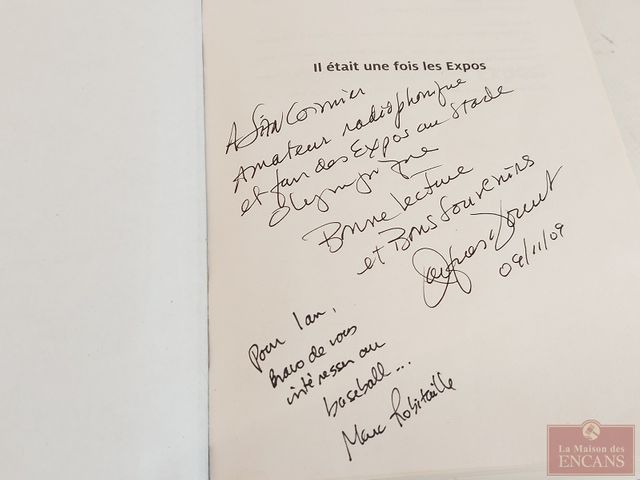 Il était une fois les Expos
A Stan Cormier
Amateur radiophonique
et fan des Expos au Stade
Olympique
Bonne lecture
et Bons Souvenirs
Jacques Doucet
09/11/09
Pour Ian,
Bravo de vous
intéresser au
baseball...
Marc Robitaille
La Maison des
ENCANS